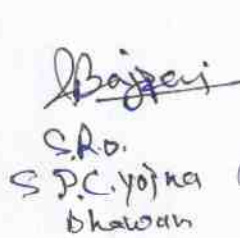 Bajpai
S.R.O.
S.P.C. Yojna
Bhawan